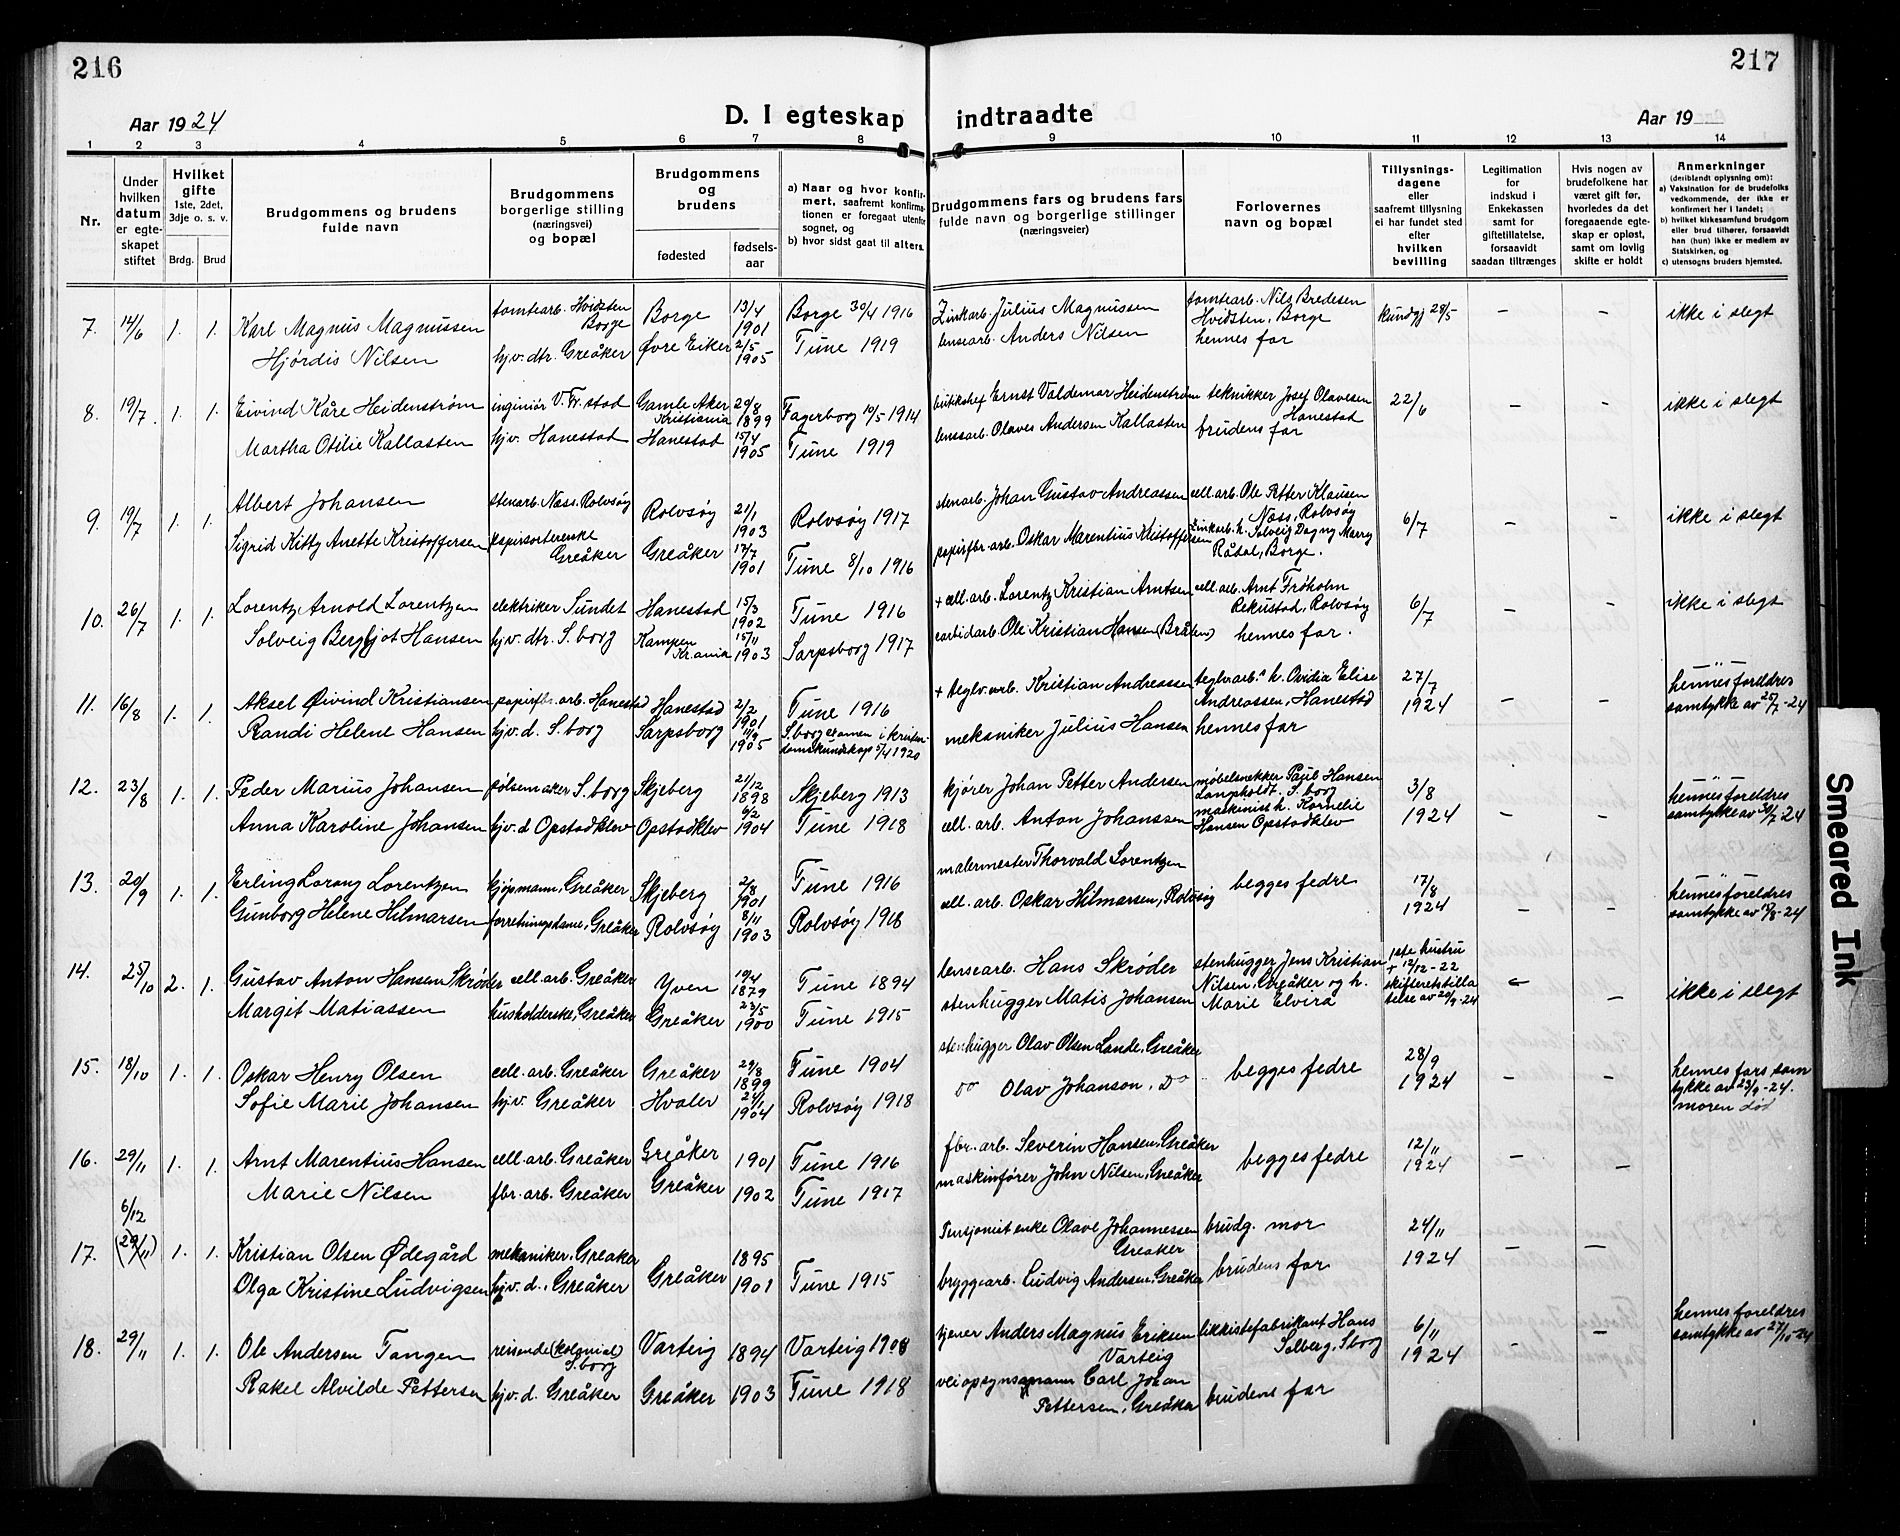 216
Aar 1924
D. I egteskap
1 2 3 4 5 6 7 8
Nr.
Under hvilken datum er egteskapet stiftet
Hvilket gifte 1ste, 2det, 3dje o. s. v.
Brdg. Brud
Brudgommens og brudens fulde navn
Brudgommens borgerlige stilling (næringsvei) og bopæl
Brudgommens og brudens
fødested
fødsels-aar
a) Naar og hvor konfirmert, saafremt konfirmationen er foregaat utenfor sognet, og
b) hvor sidst gaat til alters.
7. 14/6 1. 1. Karl Magnus Magnussen tomtearb. Hvidsten Borge Borge 13/4 1901 Borge 30/4 1916
Hjørdis Nilsen hjv. dtr. Greåker Øvre Eiker 2/5 1905 Tune 1919
8. 19/7 1. 1. Eivind Kåre Heidenstrøm ingeniør V. Fr.stad Gamle Aker Kristiania 29/8 1899 Fagerborg 10/5 1914
Martha Otilie Kallasten hjv. Hanestad Hanestad 15/4 1905 Tune 1919
9. 19/7 1. 1. Albert Johansen stenarb. Næss, Rolvsøy Rolvsøy 21/1 1903 Rolvsøy 1917
Sigrid Kitty Anette Kristoffersen papirsorterenske Greåker Greåker 12/7 1901 Tune 8/10 1916
10. 26/7 1. 1. Lorentz Arnold Lorentzen elektriker Sundet Hanestad 15/3 1902 Tune 1916
Solveig Bergljot Hansen hjv. dtr. S.borg Kampen Kr.ania 15/11 1903 Sarpsborg 1917
11. 16/8 1. 1. Aksel Øivind Kristiansen papirfbr. arb. Hanestad Hanestad 2/2 1901 Tune 1916
Randi Helene Hansen hjv. d. S.borg Sarpsborg 1905 S.borg examen i kristendomskundskap 5/4 1920
12. 23/8 1. 1. Peder Marius Johansen pølsemaker S.borg Skjeberg 21/12 1898 Skjeberg 1913
Anna Karoline Johansen hjv. d Opstadklev Opstadklev 6/2 1904 Tune 1918
13. 20/9 1. 1. Erling Lorang Lorentzen kjøpmann, Greåker Skjeberg 2/8 1901 Tune 1916
Gunborg Helene Hilmarsen forretningsdame, Greåker Rolvsøy 8/11 1903 Rolvsøy 1918
14. 25/10 2. 1. Gustav Anton Hansen Skrøder cell. arb. Greåker Yven 19/4 1879 Tune 1894
Margit Matiassen husholderske, Greåker Greåker 23/5 1900 Tune 1915
15. 18/10 1. 1. Oskar Henry Olsen cell. arb. Greåker Greåker 29/8 1899 Tune 1904
Sofie Marie Johansen hjv. Greåker Hvaler 21/1 1904 Rolvsøy 1918
16. 29/11 1. 1. Arnt Marentius Hansen cell. arb. Greåker Greåker 1901 Tune 1916
Marie Nilsen fbr. arb. Greåker Greåker 1902 Tune 1917
6/12
17. (29/11) 1. 1. Kristian Olsen Ødegård mekaniker, Greåker 1895
Olga Kristine Ludvigsen hjv. d., Greåker Greåker 1901 Tune 1915
18. 29/11 1. 1. Ole Andersen Tangen reisende (kolonial) S.borg Varteig 1894 Varteig 1908
Rakel Alvilde Pettersen hjv. d. Greåker Greåker 1903 Tune 1918
217
indtraadte
Aar 19
9 10 11 12 13 14
Brudgommens fars og brudens fars fulde navn og borgerlige stillinger (næringsveier)
Forlovernes navn og bopæl
Tillysningsdagene eller saafremt tillysning ei har fundet sted efter hvilken bevilling
Legitimation for indskud i Enkekassen samt for giftetillatelse, forsaavidt saadan tiltrænges
Hvis nogen av brudefolkene har været gift før, hvorledes da det foregaaende egteskap er opløst, samt om lovlig skifte er holdt
Anmerkninger (deriblandt oplysning om):
a) Vaksination for de brudefolks vedkommende, der ikke er konfirmert her i landet;
b) hvilket kirkesamfund brudgom eller brud tilhører, forsaavidt han (hun) ikke er medlem av Statskirken, og
c) utensogns bruders hjemsted.
Zinkarb. Julius Magnussen tomtearb. Nils Bredesen Hvidsten, Borge kundgj 28/5 – – ikke i slegt
lensearb. Anders Nilsen hennes far
butikshef Ernst Valdemar Heidenstrøm teknikker Josef Olavesen Hanestad 22/6 – – ikke i slegt
lensearb. Olaves Andersen Kallasten brudens far
stenarb. Johan Gustav Andreassen cell. arb. Ole Petter Klausen Næss, Rolvsøy 6/7 – – ikke i slegt
papirfbr. arb. Oskar Marentius Kristoffersen Zinkarb. h. Solveig Dagny Marry Rådal, Borge.
+ cell. arb. Lorentz Kristian Arntsen cell. arb. Arnt Frøholm Rekustad, Rolvsøy 6/7 – – ikke i slegt
karbidarb. Ole Kristian Hansen (Bråten) hennes far.
+ teglv. arb. Kristian Andreassen teglv. arb.s h. Ovidia Elise Andreassen, Hanestad 27/7 1924 – – hennes foreldres samtykke av 25/7-24
mekaniker Julius Hansen hennes far
kjører Johan Petter Andersen møbelsnekker Paul Hansen Langholdt. S.borg 3/8 1924 – – hennes foreldres samtykke av 30/7-24
cell. arb. Anton Johanssen maskinist h. Kornelie Hansen Opstadklev
malermester Thorvald Lorentzen begges fedre 17/8 1924 – – hennes foreldres samtykke av 15/8-24
cell. arb. Oskar Hilmarsen, Rolvsøy
lensearb. Hans Skrøder stenhugger Jens Kristian Nilsen, Greåker og h. Marie Elvira 1ste hustru + 12/12-22 skifterets tillatelse av 29/9-24 – – ikke i slegt
stenhugger Matis Johansen
stenhugger Olav Olsen Lande, Greåker begges fedre 28/9 1924 – – hennes fars samtykke av 23/9-24. moren død
do Olav Johanson, Do
fbr. arb. Severin Hansen, Greåker begges fedre 12/11 1924 – –
maskinfører John Nilsen, Greåker
Pensjonist enke Olave Johannessen Greåker brudg. mor 24/11 1924 – –
bryggearb. Ludvig Andersen, Greåker brudens far
tjener Anders Magnus Eriksen Varteig likkistefabrikant Hans Solberg, Sborg 6/11 1924 – – hennes foreldres samtykke av 27/10-24
veiopsynsmann Carl Johan Pettersen, Greåker brudens far
Smeared Ink